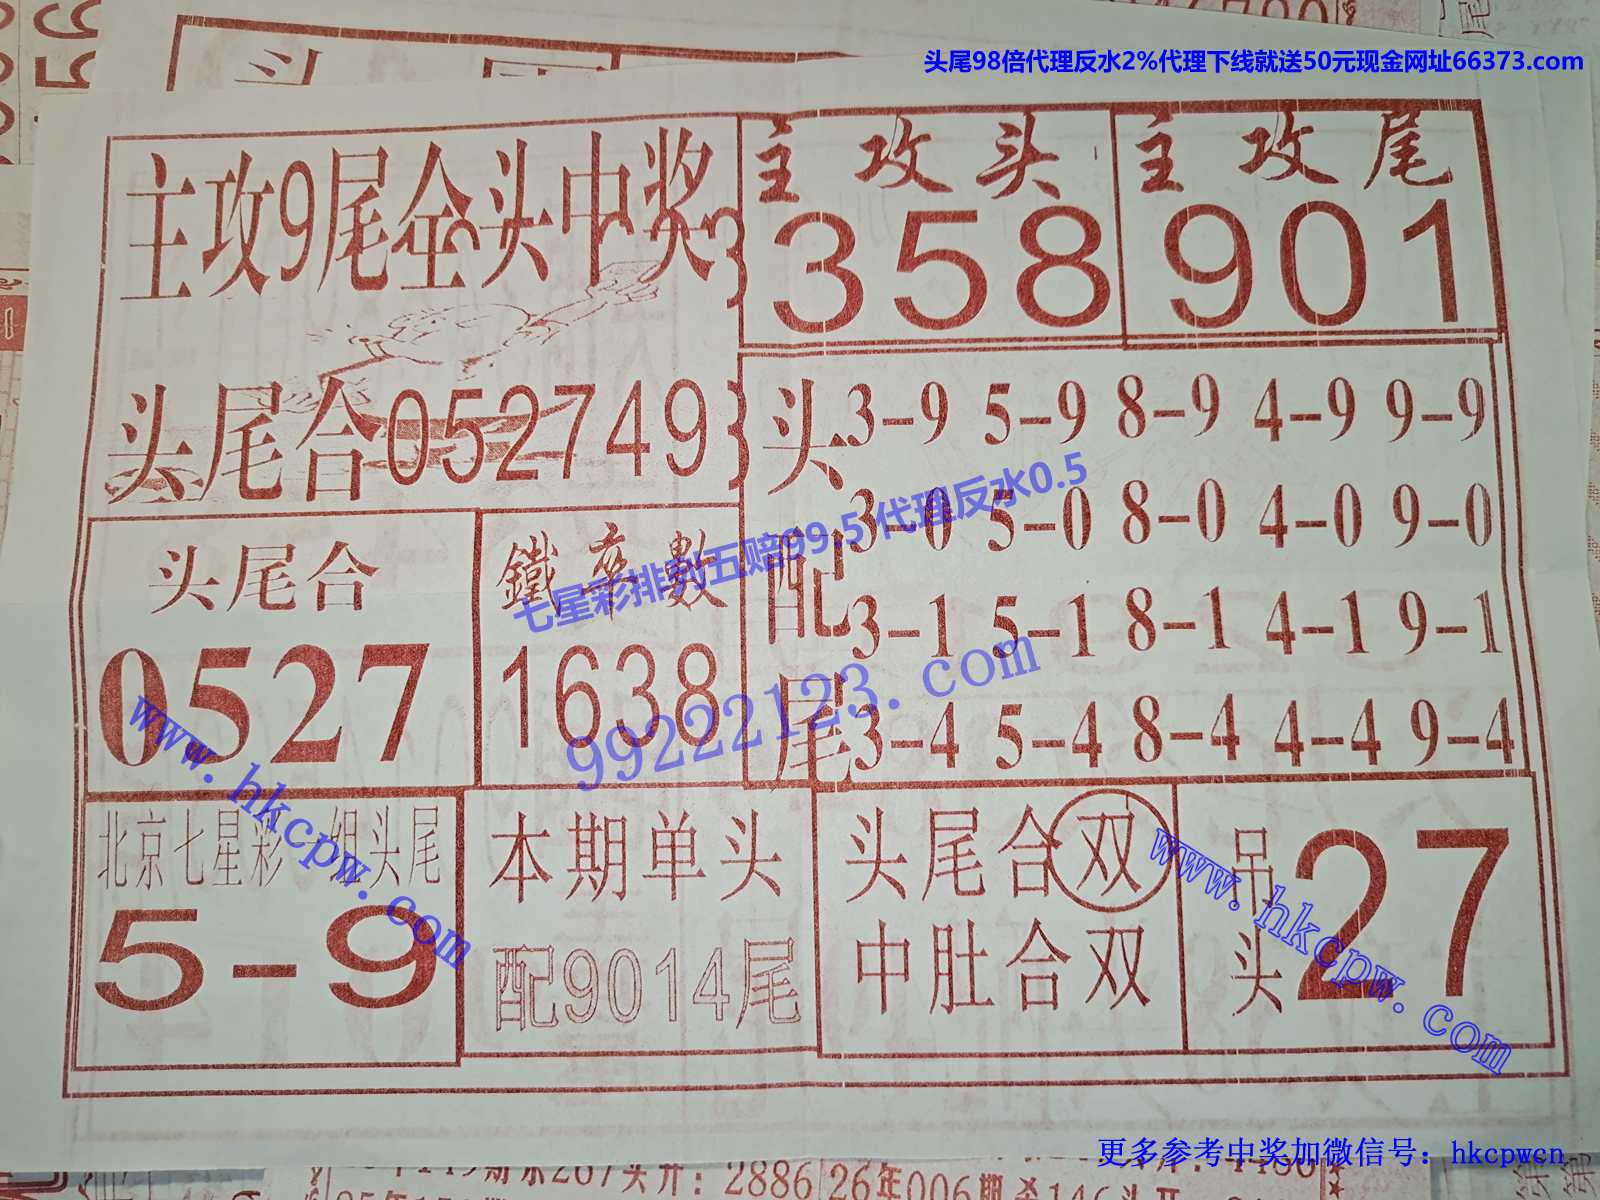 头尾98倍代理反水2%代理下线就送50元现金网址66373.com
主攻9尾全头中奖
主攻头
358
主攻尾
901
头尾合052749
头配尾
3-9 5-9 8-9 4-9 9-9
3-0 5-0 8-0 4-0 9-0
3-1 5-1 8-1 4-1 9-1
3-4 5-4 8-4 4-4 9-4
七星彩排列五赔99.5 代理反水0.5
99222123.com
头尾合
0527
鐵率數
1638
www.hkcpw.com
北京七星彩一组头尾
5-9
本期单头
配9014尾
头尾合双
中肚合双
吊头
27
www.hkcpw.com
更多参考中奖加微信号：hkcpwcn
头开：2886
26年006期杀146头开